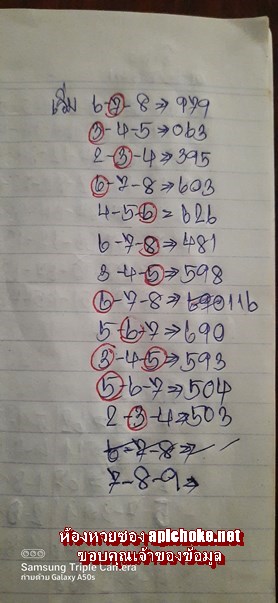 เริ่ม 6-7-8⇒979
3-4-5⇒063
2-3-4⇒395
6-7-8⇒603
4-5-6=626
6-7-8⇒481
3-4-5⇒598
6-7-8⇒116
5-6-7⇒690
3-4-5⇒593
5-6-7⇒504
2-3-4⇒503
6-7-8⇒
7-8-9⇒
ห้องหวยซอง apichoke.net
ขอบคุณเจ้าของข้อมูล
Samsung Triple Camera
ถ่ายด้วย Galaxy A50s